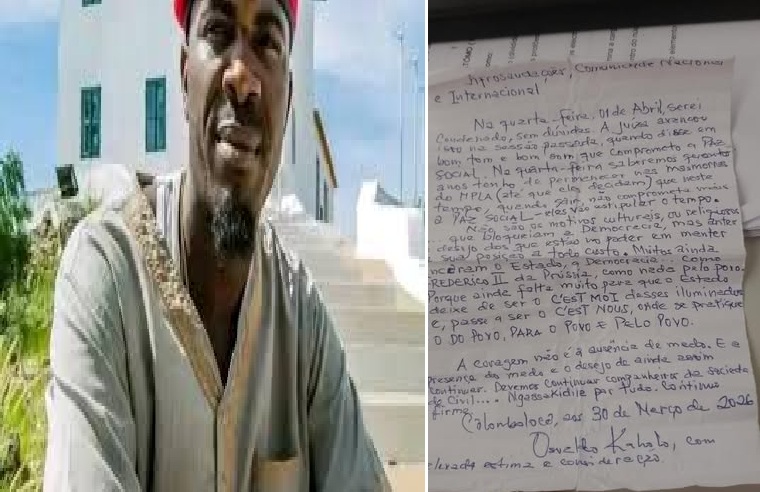 Aprosaudações, Comunidade Nacional
e Internacional
Na quarta-feira, 01 de Abril, serei
Condenado, sem dúvidas. A juíza avançou
isto na sessão passada, quando disse em
bom tom e bom som que comprometo a PAZ
SOCIAL. Na quarta-feira saberemos quantos
anos tenho de permanecer nas masmorras
do MPLA (até que eles decidam) que neste
tempo, quando sair, não comprometa mais
a PAZ SOCIAL - eles vão estipular o tempo.
Não são os motivos culturais, ou religiosos
que bloqueiam a Democracia, mas antes
desejo dos que estão no poder em manter
sua posição a todo custo. Muitos ainda
o Estado, a Democracia... como
FREDERICO II da Prússia, como nada pelo povo.
Porque ainda falta muito para que o Estado
deixe de ser o C'EST MOI desses iluminados
e, passe a ser o C'EST NOUS, onde se pratique
O DO POVO, PARA O POVO E PELO POVO.
A coragem não é a ausência de medo. É a
presença do medo e o desejo de ainda assim
continuar. Devemos continuar companheiros da Socieda
de Civil... Ngassakidile por tudo. Continuo
firme.
Calomboloca, aos 30 de Março de 2026
Osvaldo Kaholo, com
elevada estima e consideração.